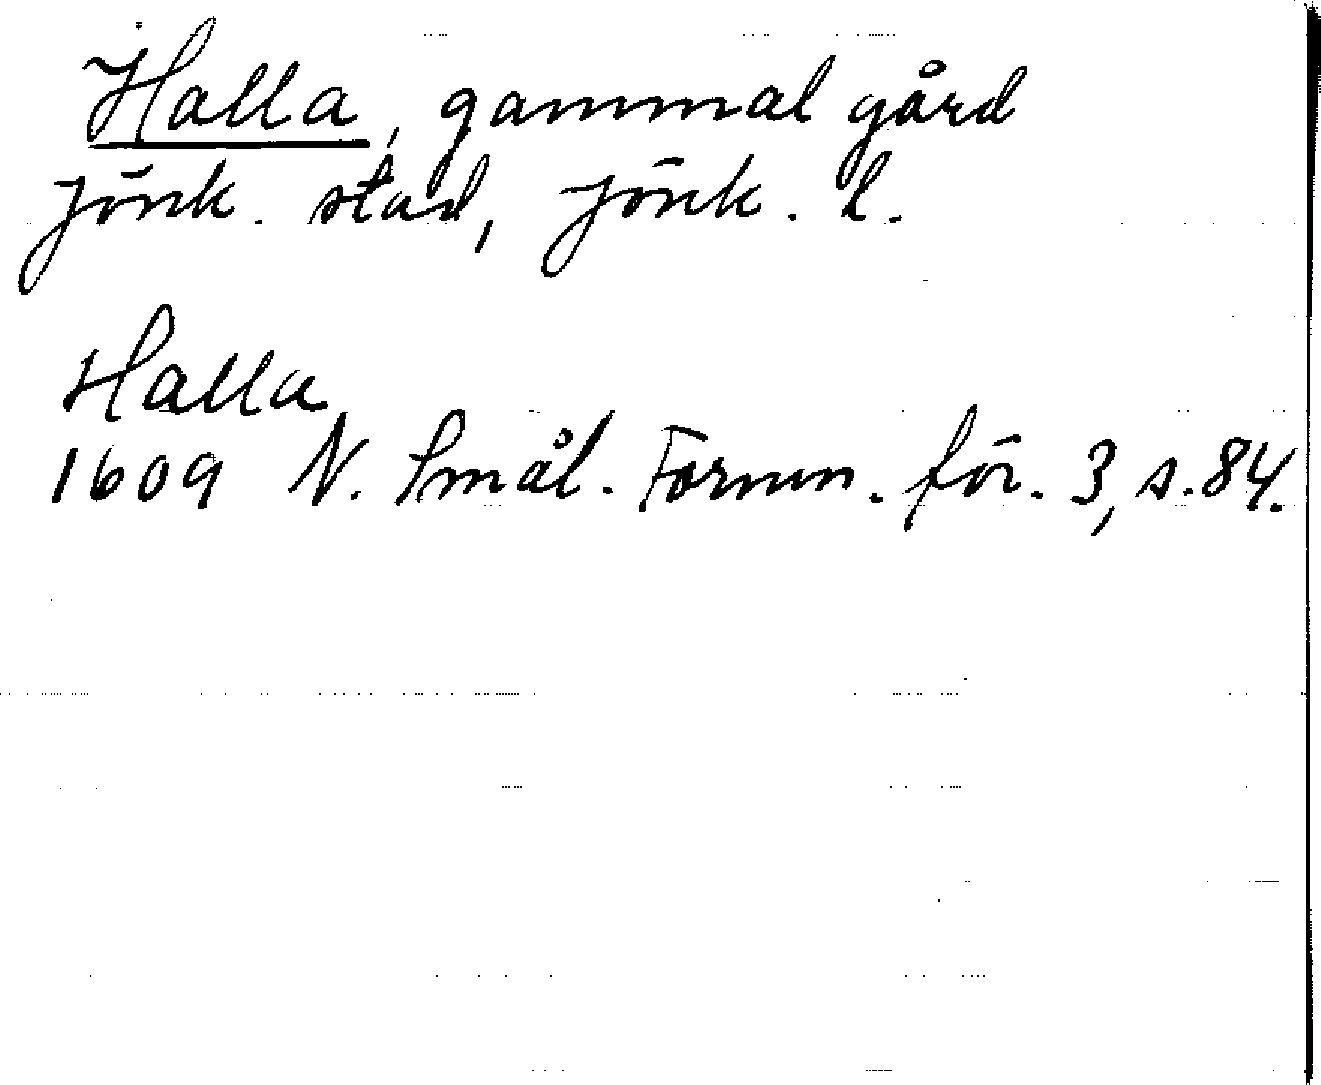 Halla, gammal gård
Jönk. stad, Jönk. l.
Halla
1609 N. Smål. Fornm. för. 3, s. 84.